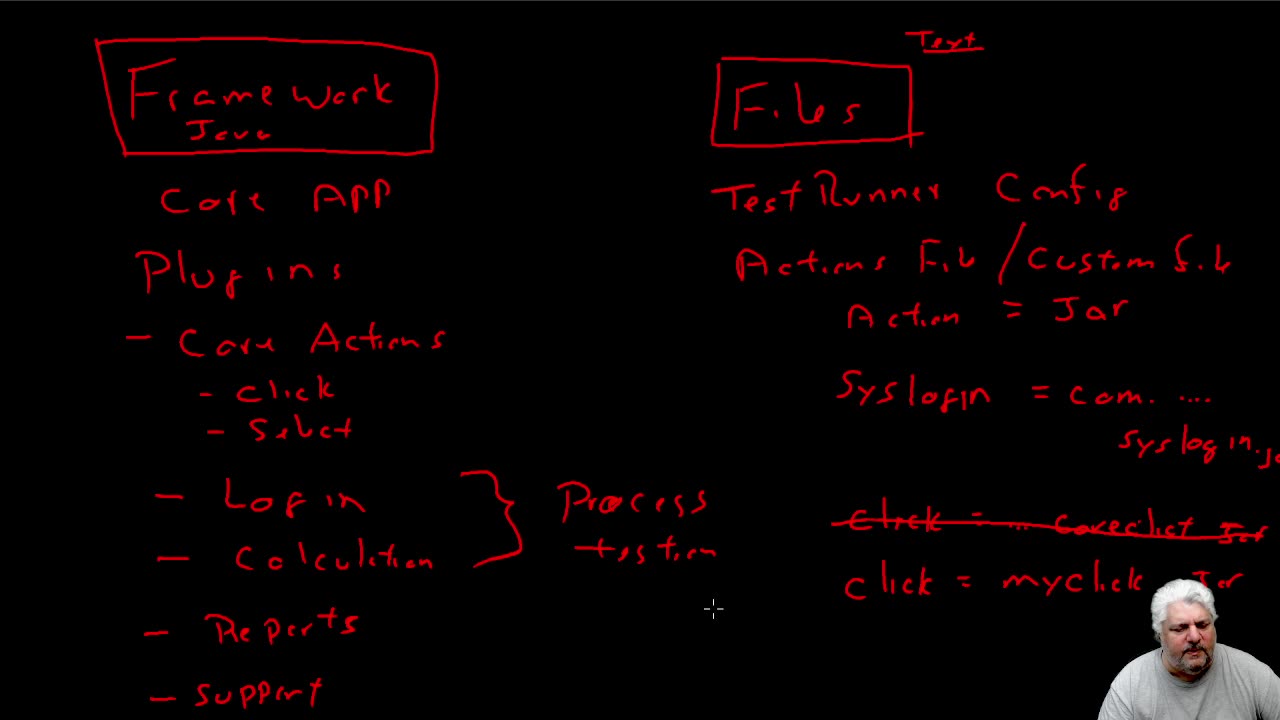 Framework
Java
Core App
Plugins
- Core Actions
- Click
- Select
- Login
- Calculation
} Process
- Reports
- Support
Text
Files
TestRunner Config
Actions File / Custom file
Action = Jar
Syslogin = com. ....
syslogin.
click = ...
click = myclick Jar